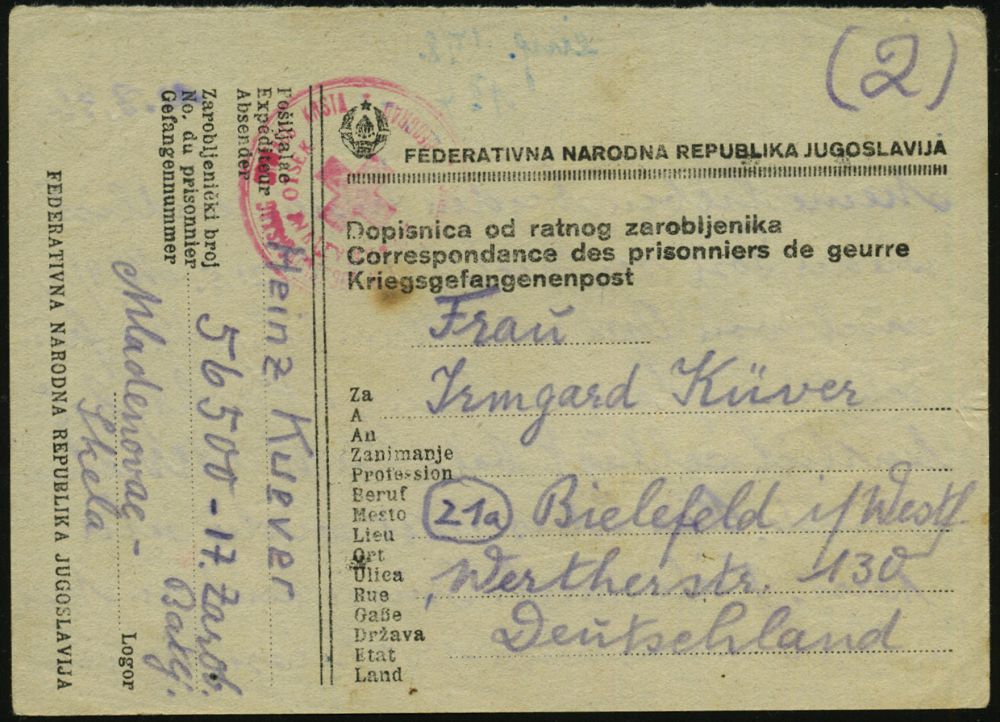 (2)
FEDERATIVNA NARODNA REPUBLIKA JUGOSLAVIJA
Dopisnica od ratnog zarobljenika
Correspondance des prisonniers de geurre
Kriegsgefangenenpost
Frau
Za
A
An
Irmgard Küver
Zanimanje
Profession
Beruf
Mesto
Lieu
Ort
(21a) Bielefeld i/Westf.
Ulica
Rue
Gaße
Wertherstr. 130
Država
Etat
Land
Deutschland
Pošiljalac
Expediteur
Absender
Heinz Kuever
Zarobljenički broj
No. du prisonnier
Gefangonnummer
56500 - 17. Zarob.
Mladenovac -
Skela
Logor
FEDERATIVNA NARODNA REPUBLIKA JUGOSLAVIJA